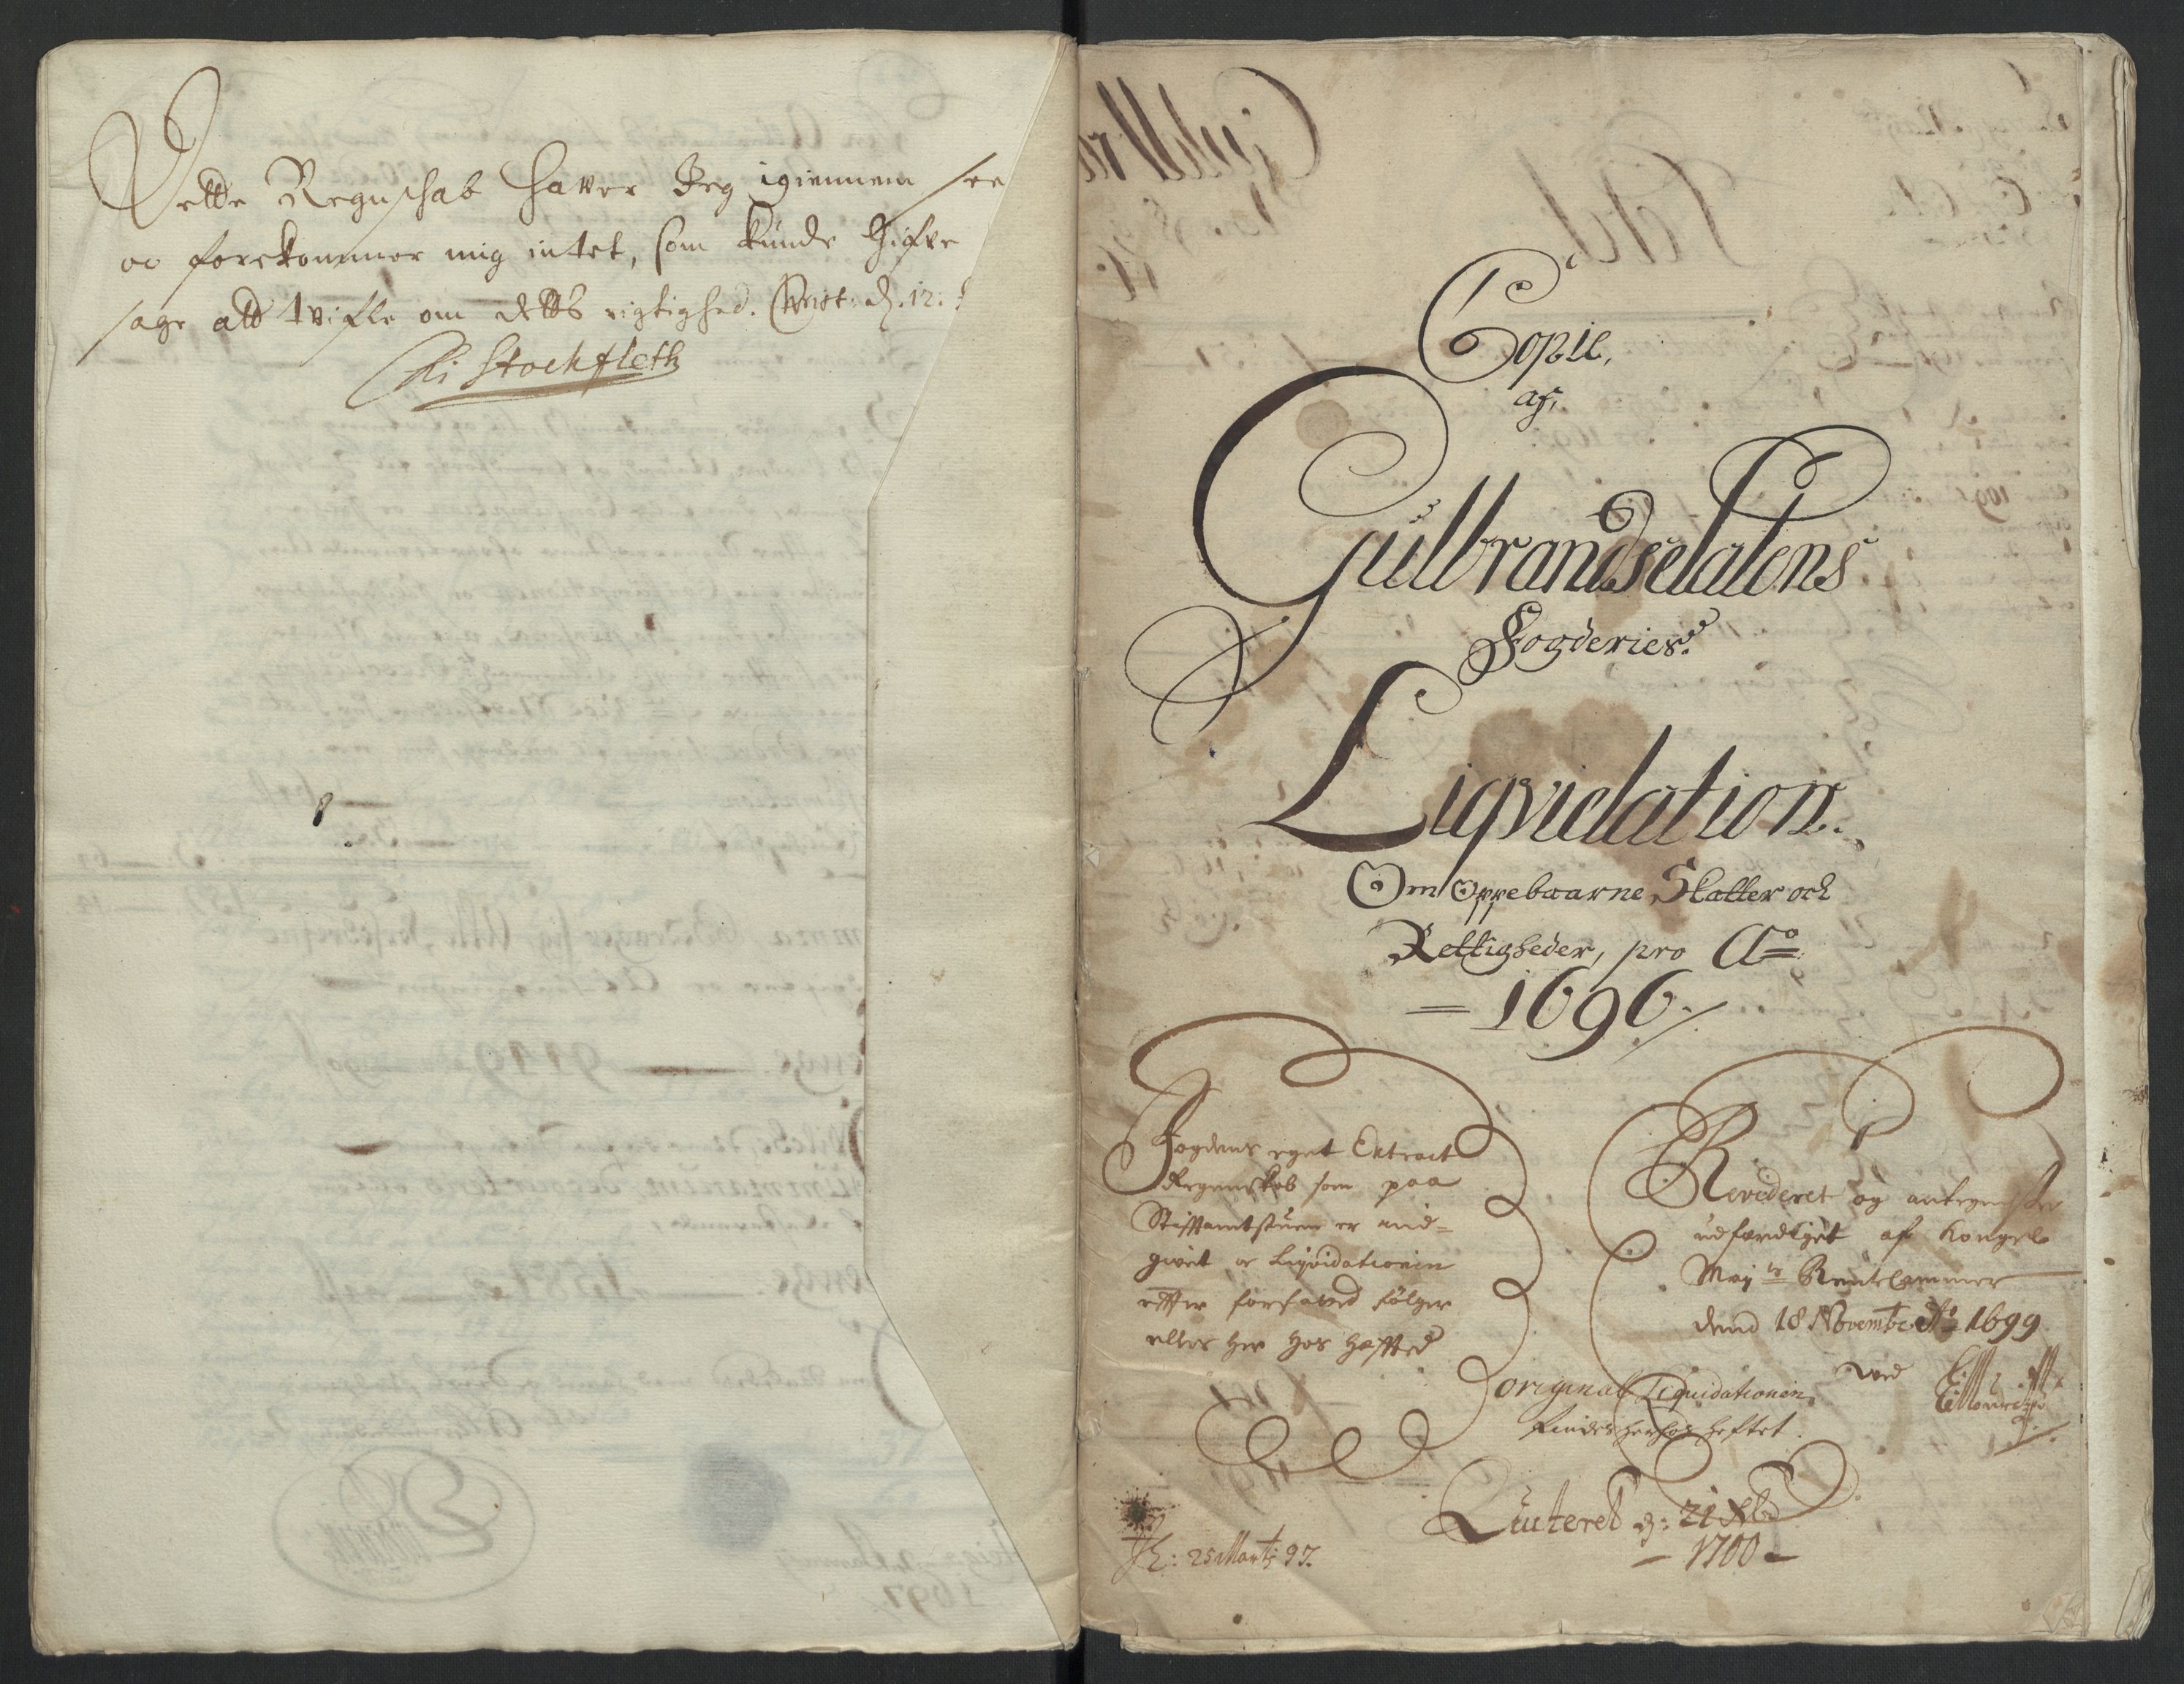 Dette Regnschab hafver Jeg igiennem see
oc forekommer mig intet, som kunde Gifve
sage att tvifle om dettes rigtighed. Christ: d. 12:
Hi Stockfleth
Copie,
af,
Gulbrandsdalens
Fogderies
Liqvidation.
Om Oppebaarne Skatter och
Rettigheder, pro Ao
1696.
Fogdens eget Extract
Regenskab som paa
Stifftamtstuen er ind-
givet oc Liqvidationen
effter forfatted følger
elles her hos hæfted
Revideret og antegnelser
udfærdiget af Kongel
Mayts Rentekammer
dend 18 Novembr Ao 1699
ved
original Liquidationen
findes herhos heftet.
Qviteret d: 21 Xbr
1700
: 25 Martj 97.